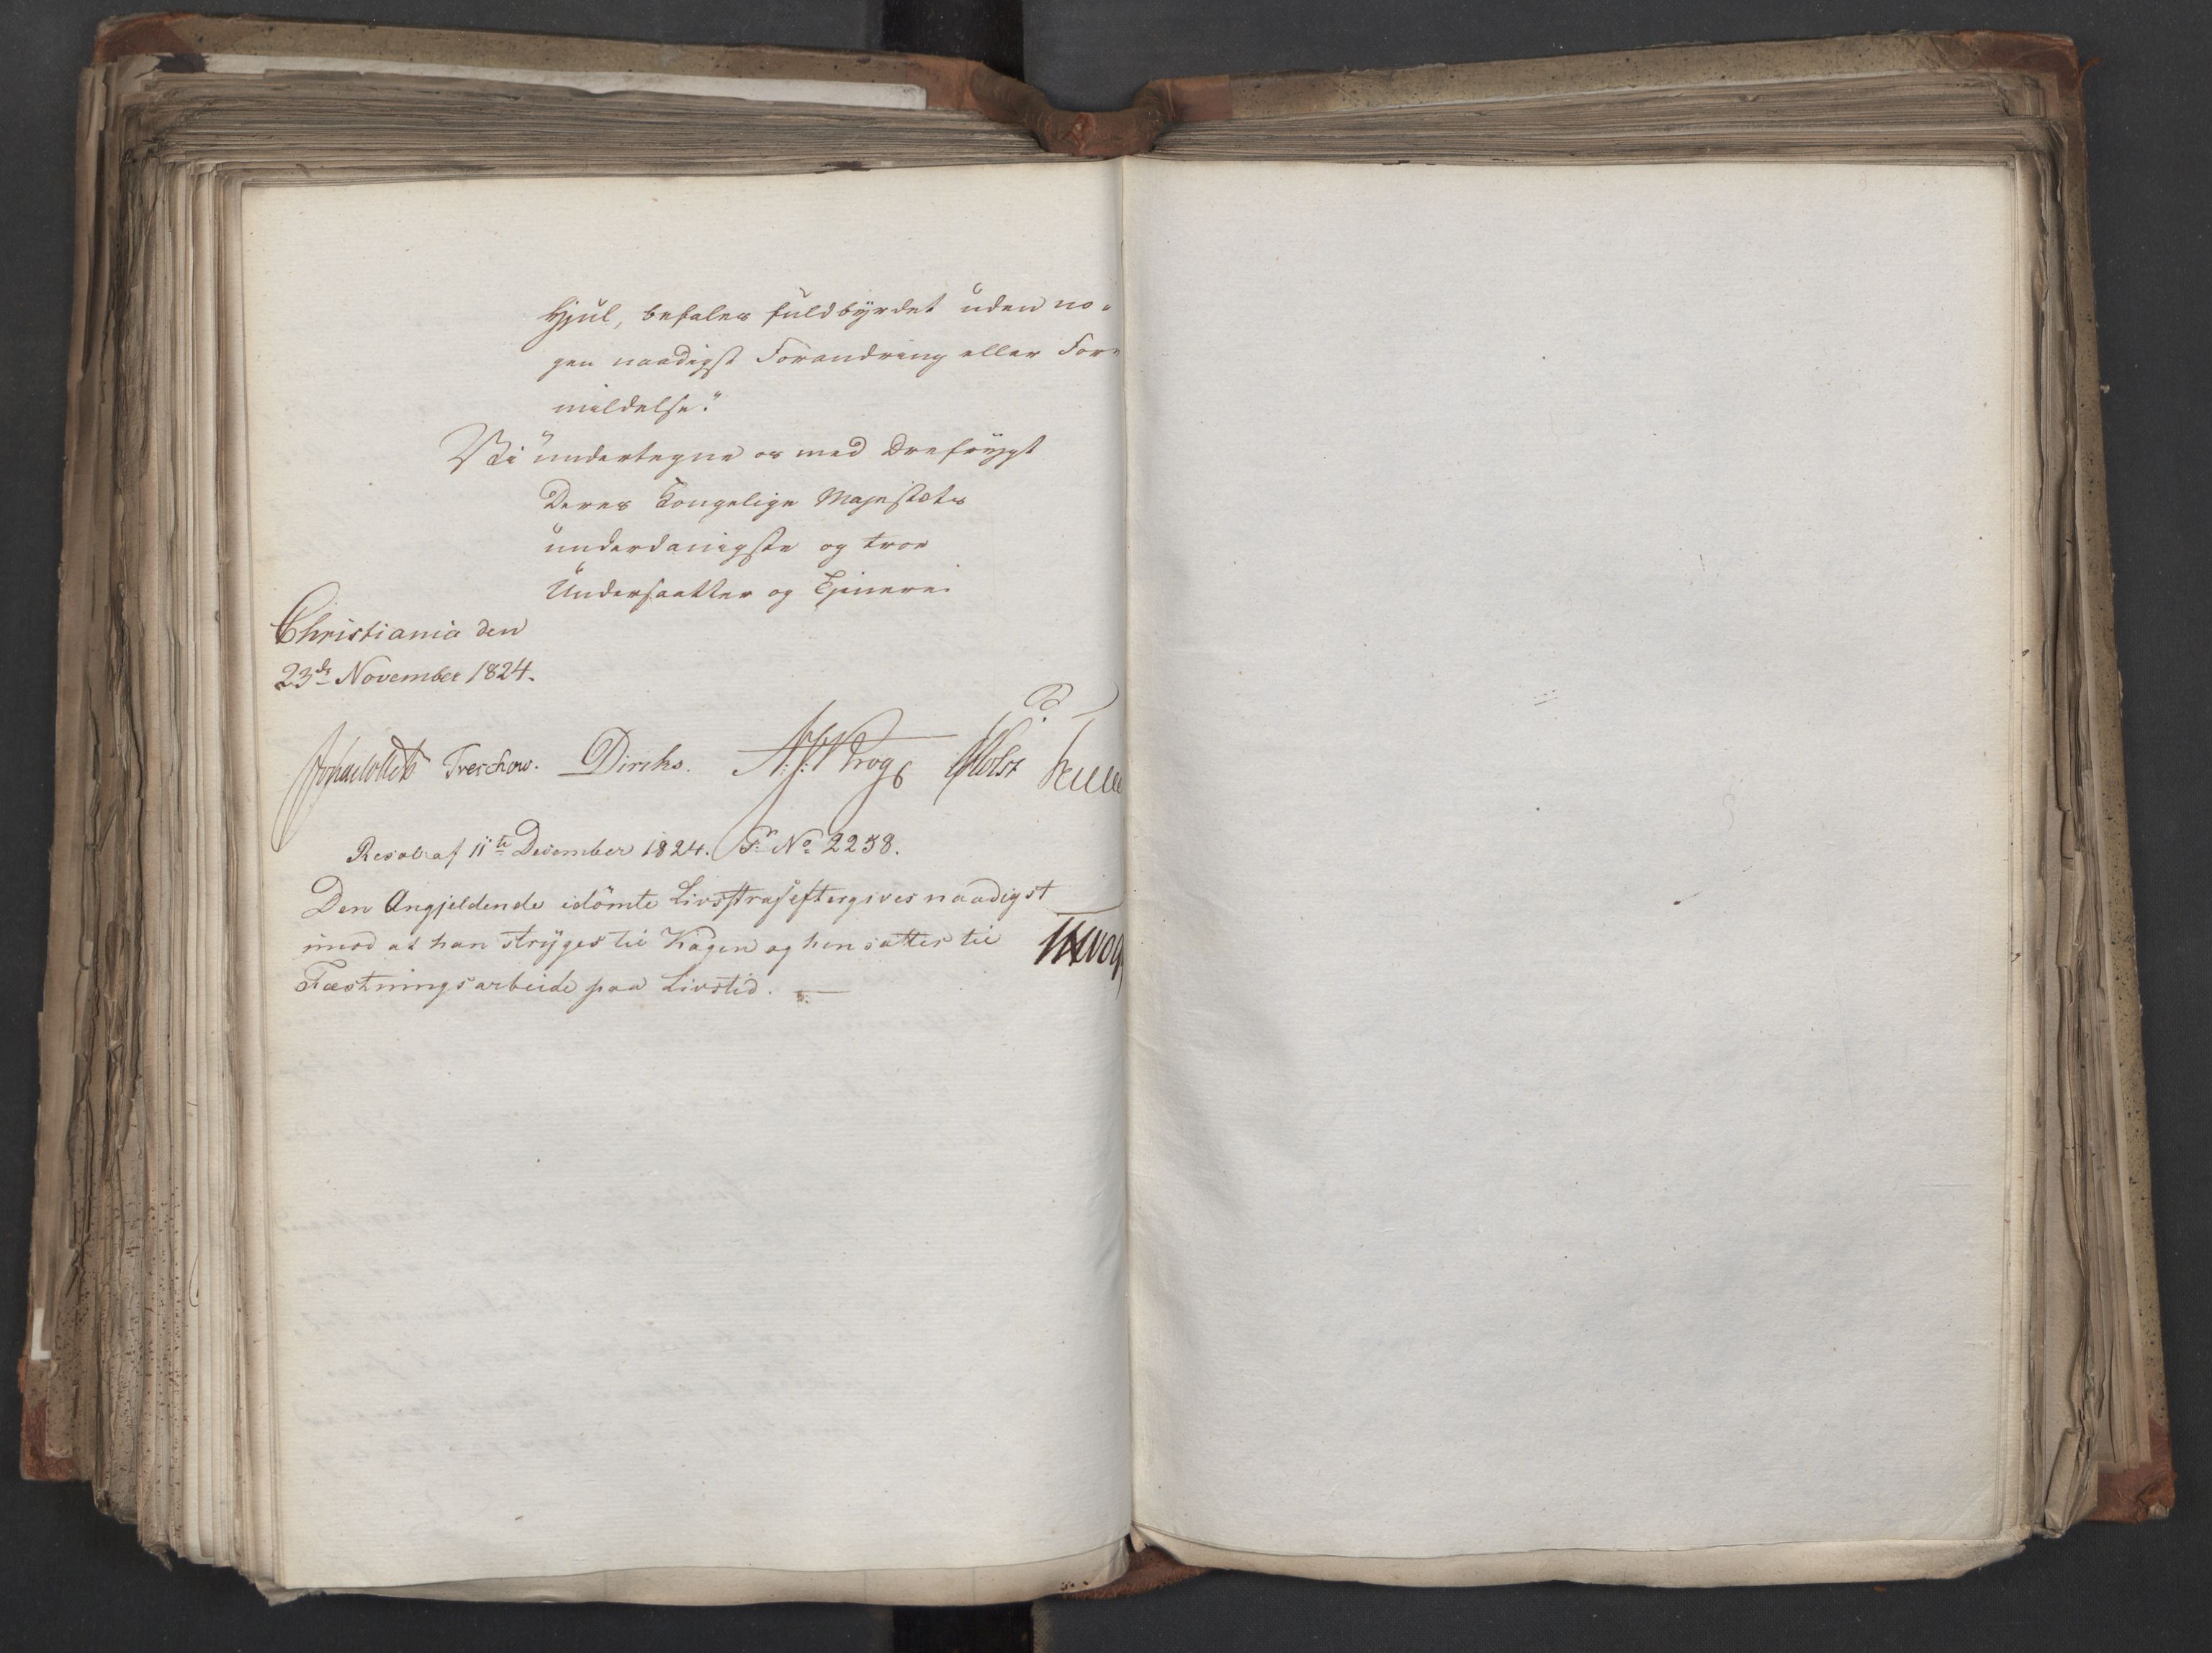 Hjul, befales fuldbyrdet uden no-
gen naadigst Forandring eller For-
mildelse."
Vi undertegne os med Drefrygt
Deres Kongelige Majestæts
underdanigste og troe
Undersaatter og Tjenere.
Christiania den
23de November 1824.
Treschow. Diriks. Krog Holst
Resol: af 11te December 1824. Pr No 2238.
Den Angjeldende idömte Livsstraf eftergives naadigst
imod at han stryges til Kagen og hensættes til
Fæstningsarbeide paa Livstid. —